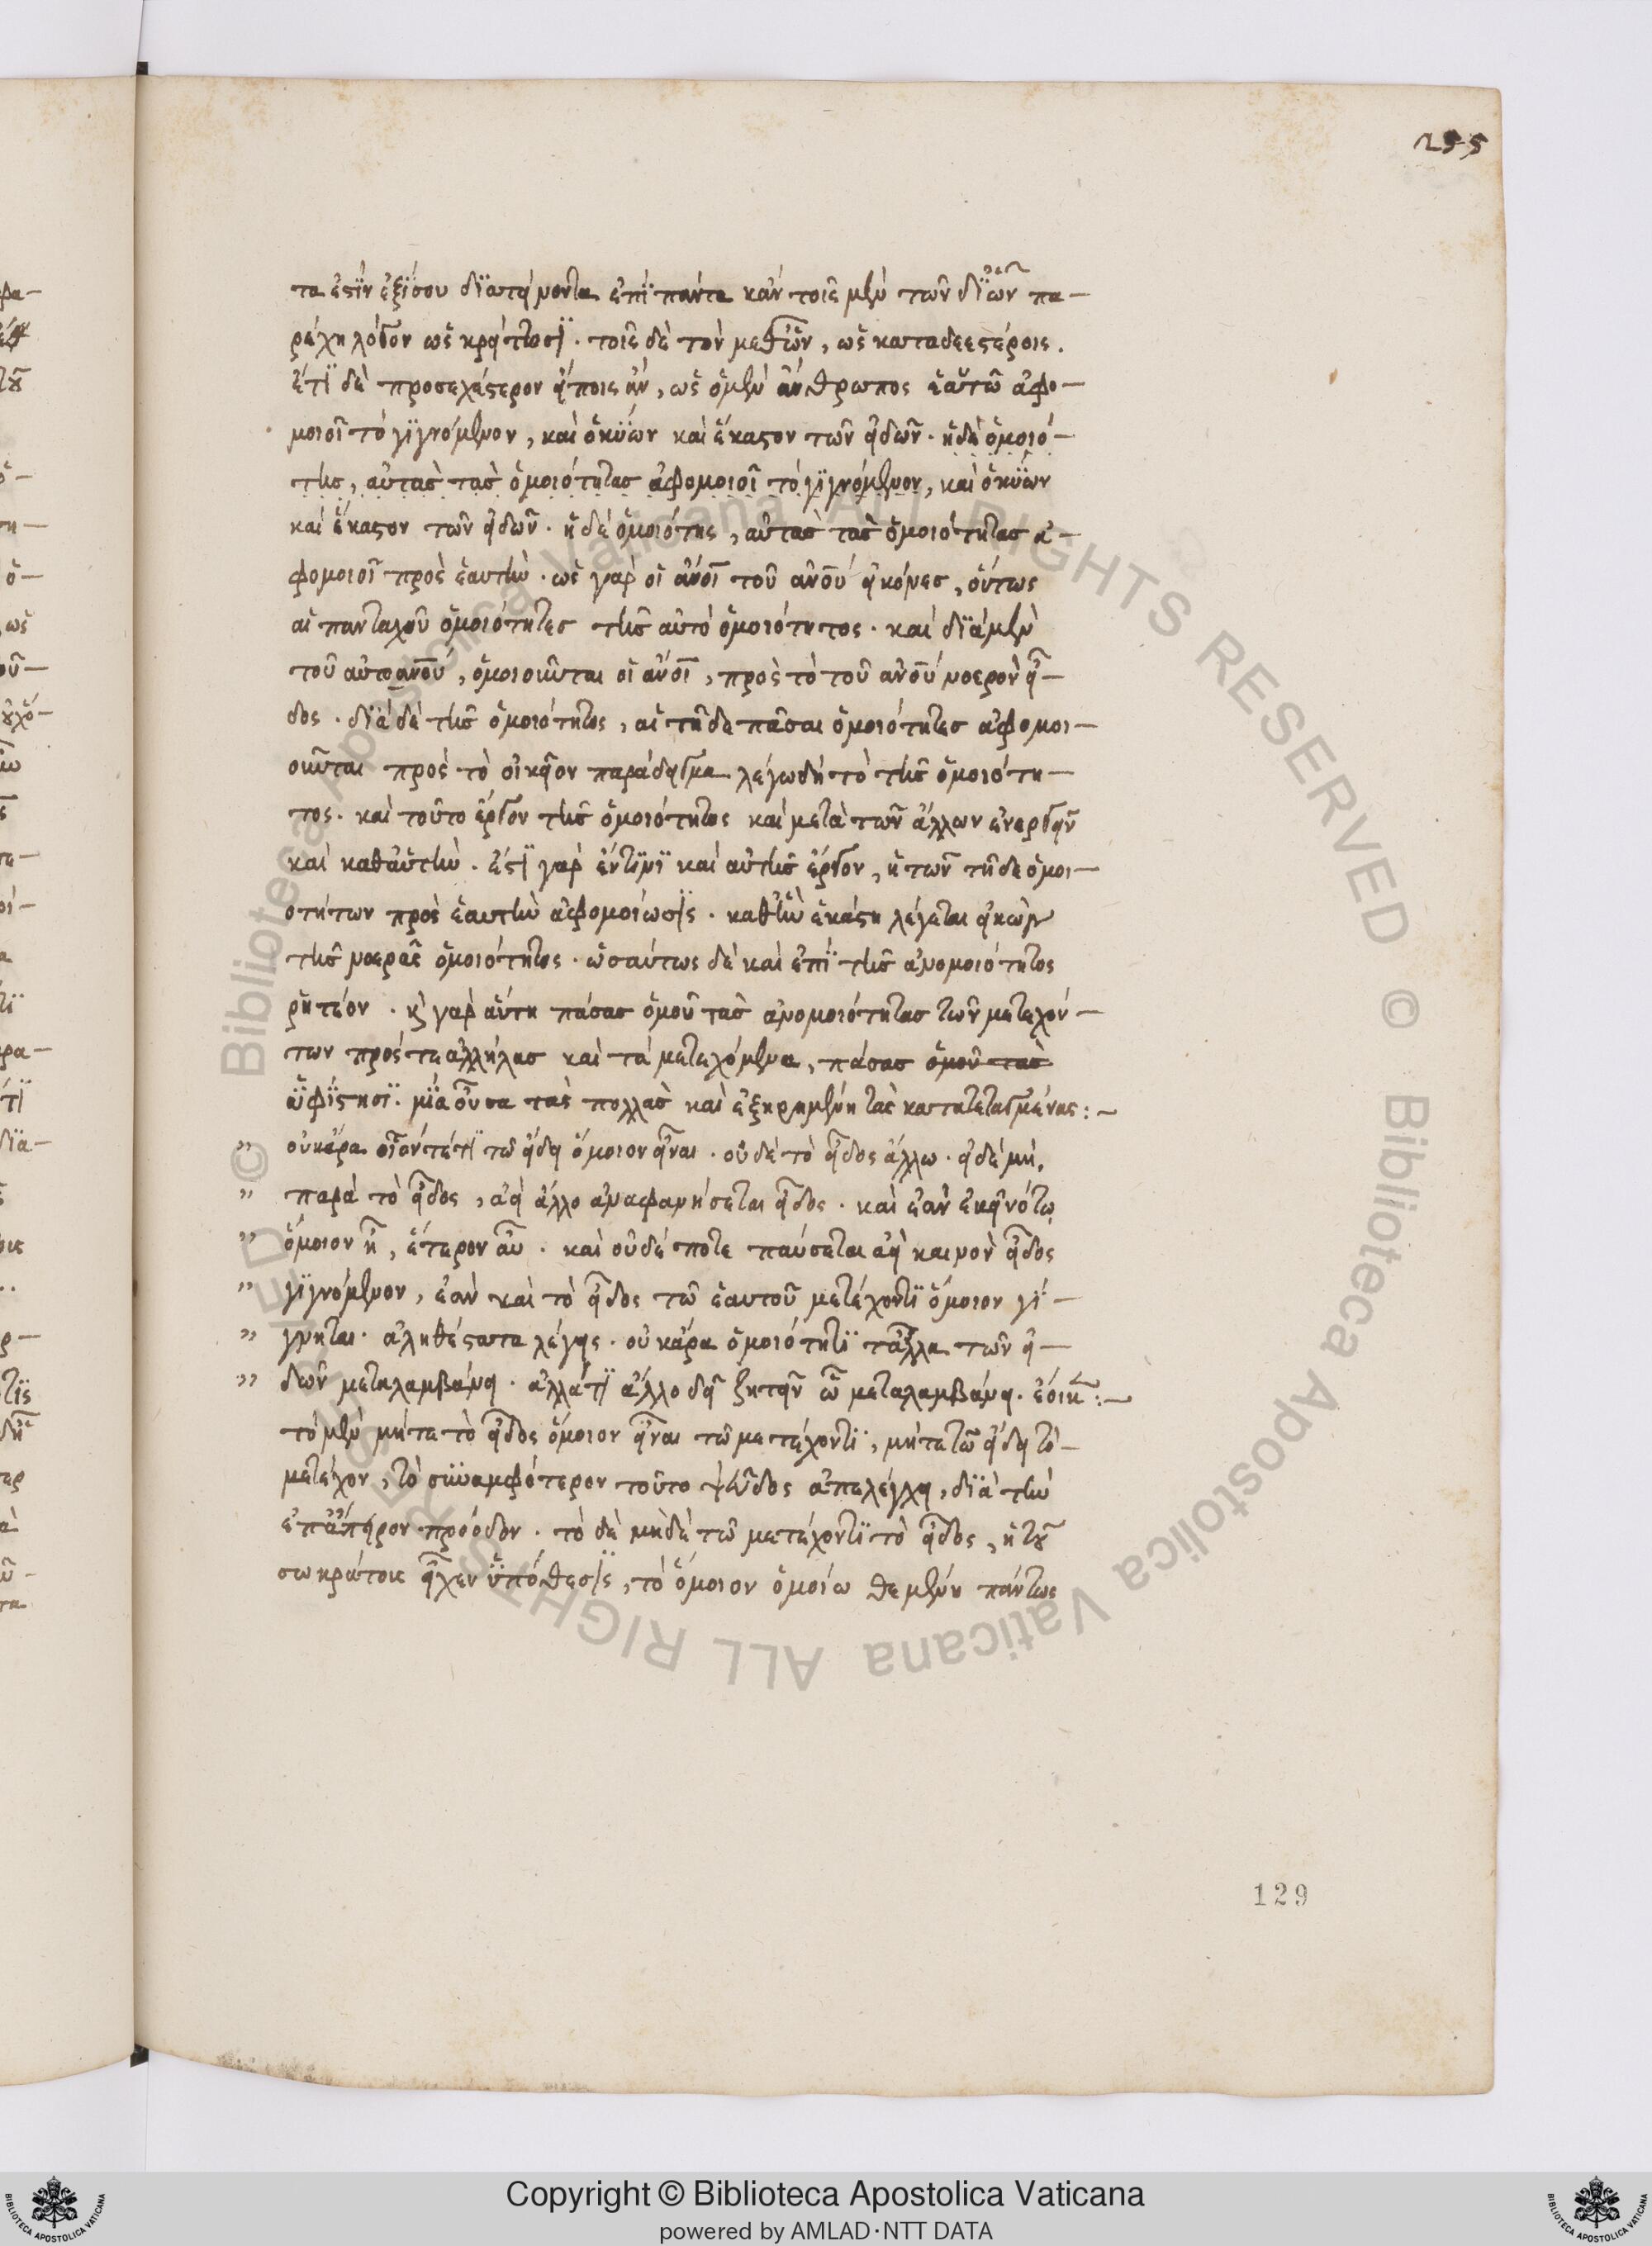 255
τα ἐστὶν ἐξίσου διατείνοντα ἐπὶ πάντα κἀν τοῖς μὲν τῶν δι' ὧν πα-
ρέχῃ λόγον ὡς κράτιστοι. τοῖς δὲ τὸν μεθ' ὧν, ὡς καταδεεστέροις.
ἔτι δὲ προσεχέστερον εἴποις ἂν, ὡς ὁ μὲν ἄνθρωπος ἑαυτῶ ἀφο-
μοιοῖ τὸ γιγνόμενον, καὶ ὁ κύων καὶ ἕκαστον τῶν εἰδῶν. ἡ δὲ ὁμοιό-
της, αὐτὰς τὰς ὁμοιότητας ἀφομοιοῖ τὸ γιγνόμενον, καὶ ὁ κύων
καὶ ἕκαστον τῶν εἰδῶν. ἡ δὲ ὁμοιότης, αὐτὰς τὰς ὁμοιότητας ἀ-
φομοιοῖ πρὸς ἑαυτὴν. ὡς γὰρ οἱ ἄνοι τοῦ ἀνοῦ εἰκόνες, οὕτως
αἱ πανταχοῦ ὁμοιότητες τῆς αὐτὸ ὁμοιότητος. καὶ διὰ μὲν
τοῦ αὐτοανοῦ, ὁμοιοῦνται οἱ ἄνοι, πρὸς τὸ τοῦ ἀνοῦ νοερὸν εἶ-
δος. διὰ δὲ τῆς ὁμοιότητος, αἱ τῇδε πᾶσαι ὁμοιότητες ἀφομοι-
οῦνται πρὸς τὸ οἰκεῖον παράδειγμα λέγω δὴ τὸ τῆς ὁμοιότη-
τος. καὶ τοῦτο ἔργον τῆς ὁμοιότητος καὶ μετὰ τῶν ἄλλων ἐνεργεῖν
καὶ καθ' αὑτὴν. ἔστι γὰρ ἔντινι καὶ αὐτῆς ἔργον, ἡ τῶν τῇδε ὁμοι-
οτήτων πρὸς ἑαυτὴν ἀφομοίωσις. καθ' ἣν ἑκάστη λέγεται εἰκὼν
τῆς νοερᾶς ὁμοιότητος. ὡσαύτως δὲ καὶ ἐπὶ τῆς ἀνομοιότητος
ῥητέον. κ γὰρ αὕτη πάσας ὁμοῦ τὰς ἀνομοιότητας τῶν μετεχόν-
των πρός τε ἀλλήλας καὶ τὰ μετεχόμενα, πάσας ὁμοῦ τὰς
ὑφίστησι. μία οὖσα τὰς πολλὰς καὶ ἐξῃρημένη τὰς κατατεταγμένας:~
" οὐκ ἄρα οἷόν τέ τι τῶ εἴδει ὅμοιον εἶναι. οὐδὲ τὸ εἶδος ἄλλω. εἰ δὲ μὴ,
" παρὰ τὸ εἶδος, ἀεὶ ἄλλο ἀναφανήσεται εἶδος. καὶ ἐὰν ἐκεῖνό τω
" ὅμοιον ᾖ, ἕτερον αὖ. καὶ οὐδέποτε παύσεται ἀεὶ καινὸν εἶδος
" γιγνόμενον, ἐὰν καὶ τὸ εἶδος τῶ ἑαυτοῦ μετέχοντι ὅμοιον γί-
" γνηται. ἀληθέστατα λέγεις. οὐκ ἄρα ὁμοιότητι τἄλλα τῶν εἰ-
" δῶν μεταλαμβάνει. ἀλλά τι ἄλλο δεῖ ζητεῖν ὧ μεταλαμβάνει. ἔοικ:~
τὸ μὲν μήτε τὸ εἶδος ὅμοιον εἶναι τῶ μετέχοντι, μήτε τῶ εἴδει τὸ
μετέχον, τὸ συναμφότερον τοῦτο ψεῦδος ἀπελέγχει, διὰ τὴν
ἐπ' ἄπειρον πρόοδον. τὸ δὲ μηδὲ τῶ μετέχοντι τὸ εἶδος, ἡ τοῦ
σωκράτους εἶχεν ὑπόθεσις, τὸ ὅμοιον ὁμοίω θεμένη πάντως
129
Copyright © Biblioteca Apostolica Vaticana
powered by AMLAD·NTT DATA
© Biblioteca Apostolica Vaticana ALL RIGHTS RESERVED © Biblioteca Apostolica Vaticana ALL RIGHTS RESERVED